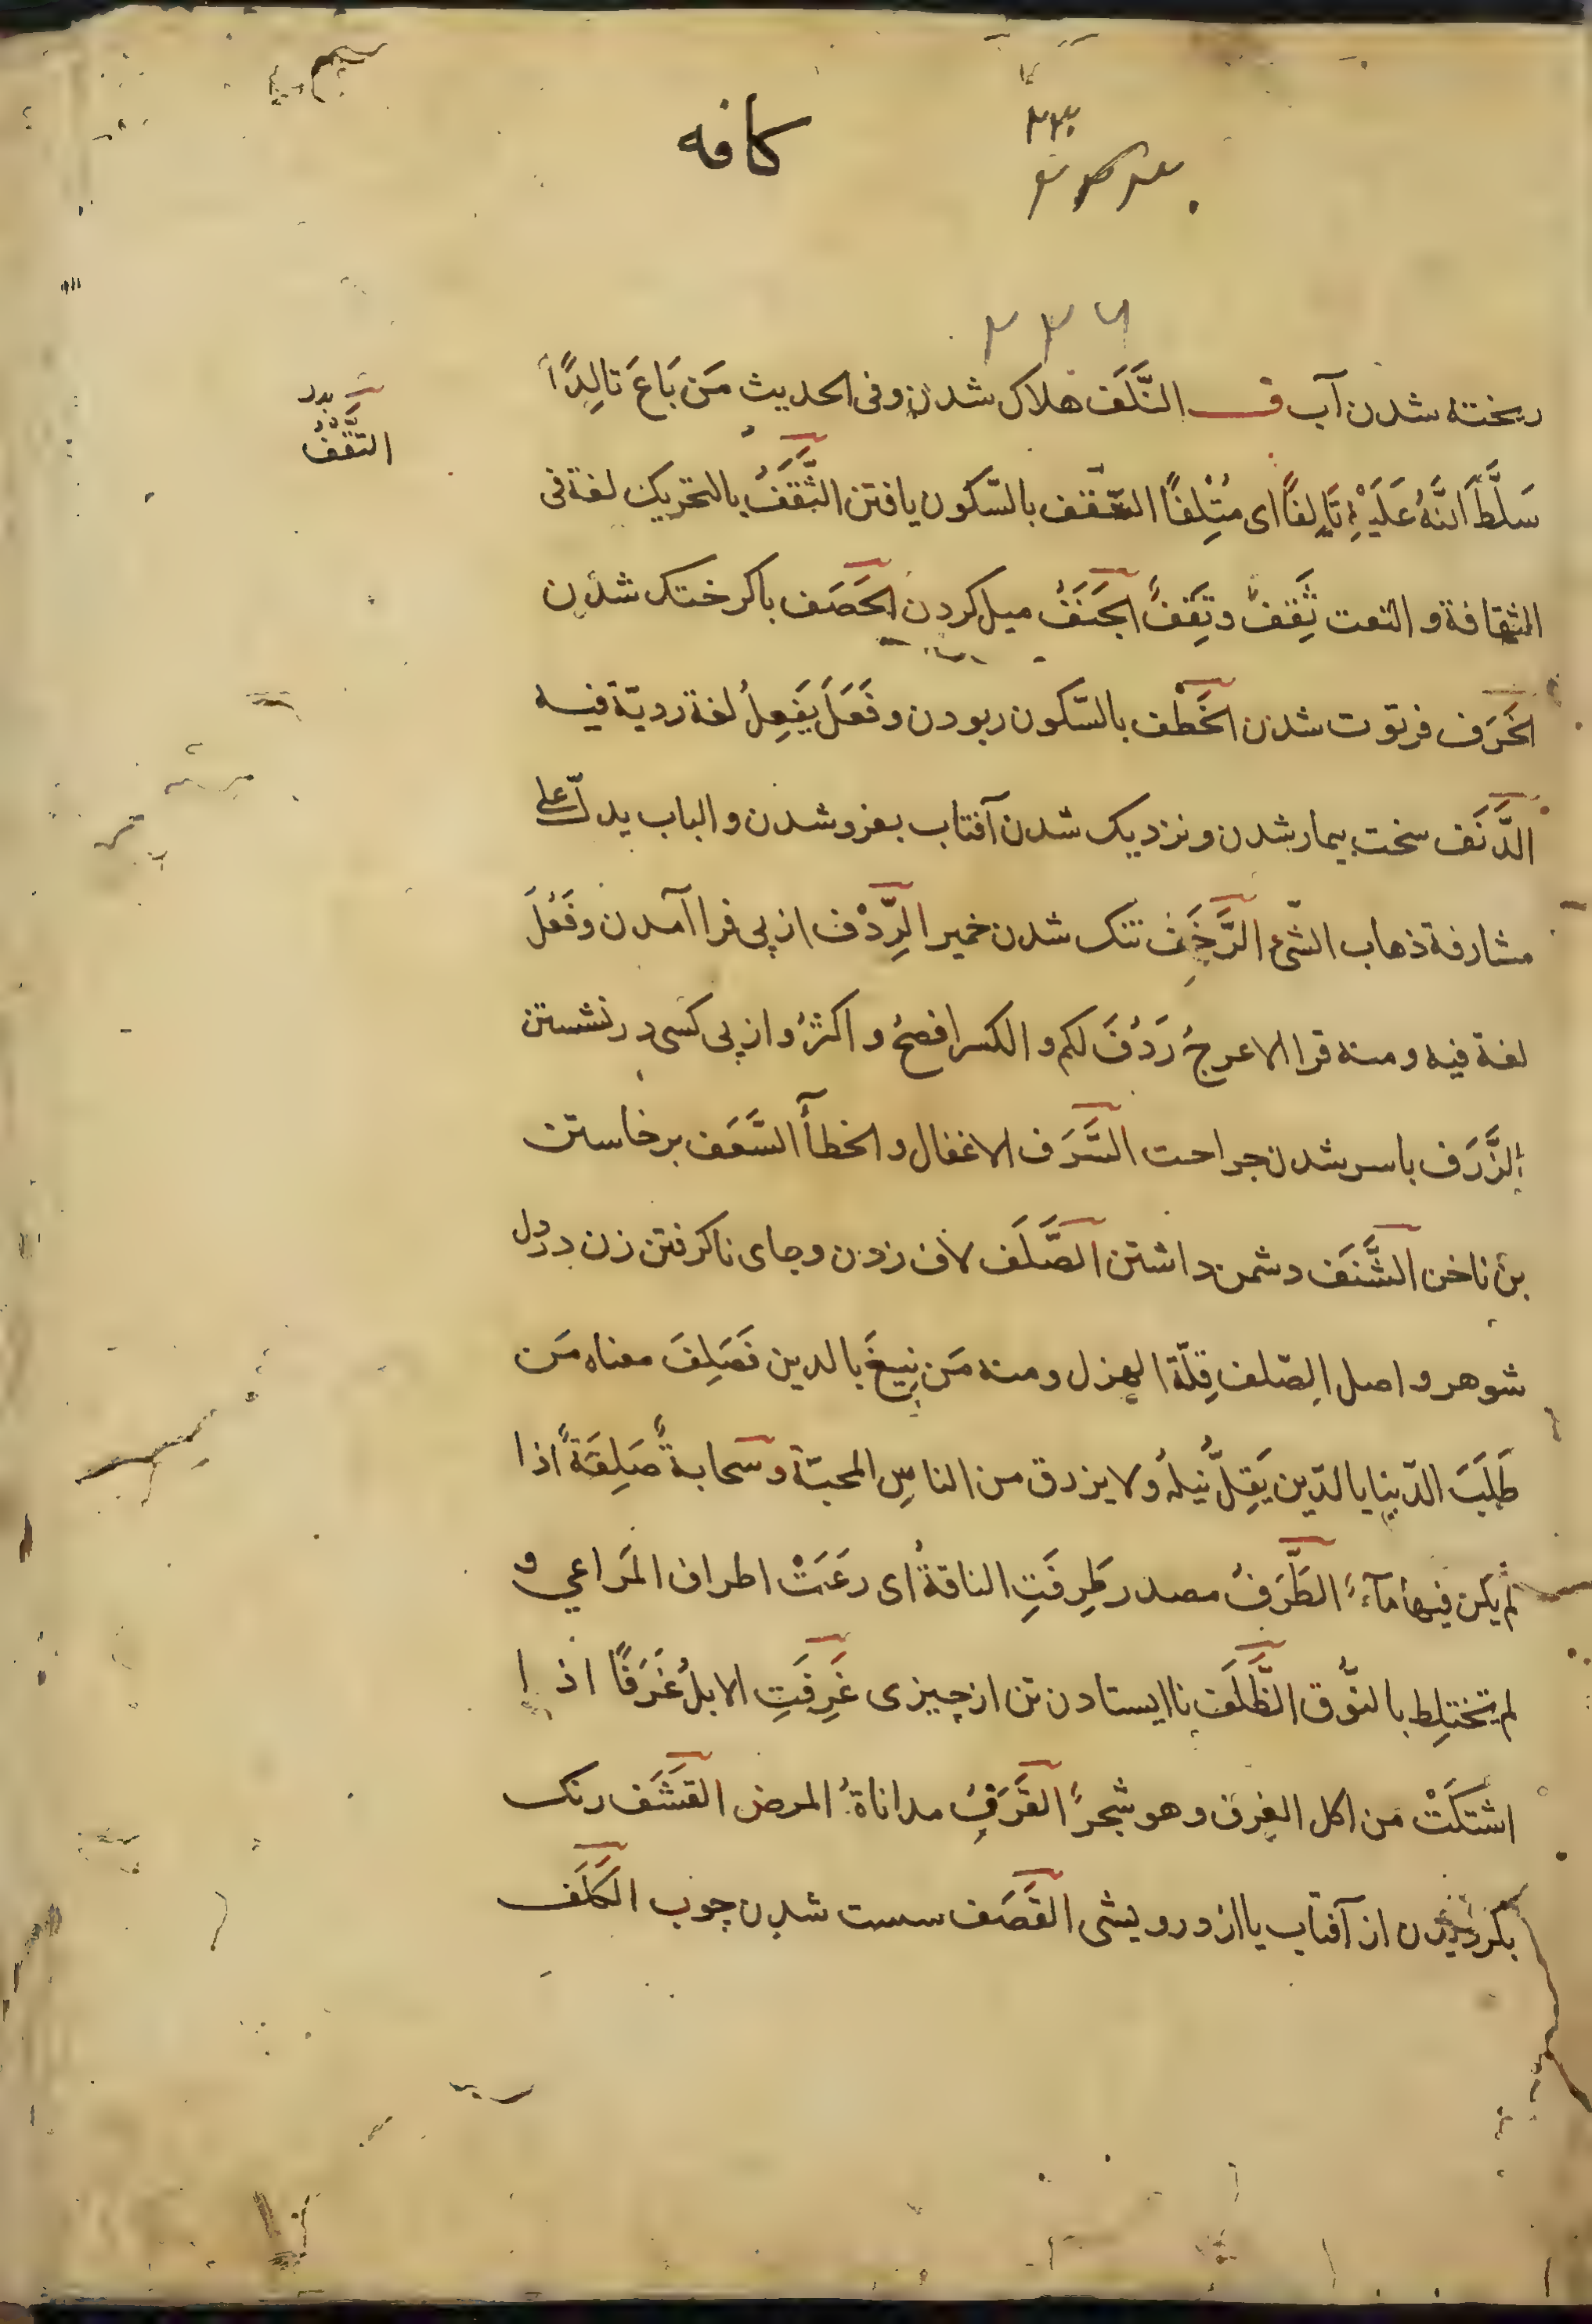 کافه
ریخته شدن آب ف التَّلَف هلاک شدن وفی الحدیث مَن بَاعَ تالِدًا
بدر
الثَّقْفُ
سَلَّطَ اَللَّهُ عَلَیْهِ تَالِفًا ای مُتْلِفًا الثقف بالسّکون یافتن الثَّقَفُ بالتحریک لغة فی
الثقافة و النعت ثَقِفٌ وثَقِفٌ الجَنَفُ میل کردن الحَصَف باکر خشک شدن
الخَرَف فرتوت شدن الخَطْف بالسّکون ربودن و فَعَلَ یَفْعِلُ لغة ردیّة فیه
الدَّنَف سخت بیمار شدن و نزدیک شدن آفتاب بفرو شدن و الباب یدلّ علی
مشارفة ذهاب الشّیء الرَّخَف تنک شدن خمیر الرِّدْف از پی فرا آمدن و فَعَلَ
لغة فیه و منه قرا الاعرجُ رَدَفَ لکم و الکسر افصحُ و اکثرُ و از پی کسی در نشستن
الزَّرَف باسر شدن جراحت السَّرَف الاغفال و الخطأ السَّعَف برخاستن
بن ناخن الشَّنَف دشمن داشتن الصَّلَف لاف زدن و جای ناکرفتن زن در دل
شوهر و اصل الصّلف قِلّة الهزل و منه مَن یَبغِ بالدین فَصَلِفَ معناه مَن
طَلَبَ الدّنیا بالدّین یَقِلُّ نَیلُهُ و لا یرزق من الناسِ المحبّة و سحابةٌ صَلِفَةٌ اذا
لم یکن فیها مآءٌ الطَّرَفُ مصدر طَرِفَتِ الناقةُ ای رَعَتْ اطراف المَراعي و
لم یختلِط بالنّوق الظَّلَف ناایستادن تن از چیزی غَرِفَتِ الابلُ غَرَفًا اذا
اشتکَتْ من اکل الغرف و هو شجرٌ القَرَفُ مداناةُ المرض القَشَف رنک
بکردیدن از آفتاب یا از درویشی القَصَف سست شدن چوب الکَلَف